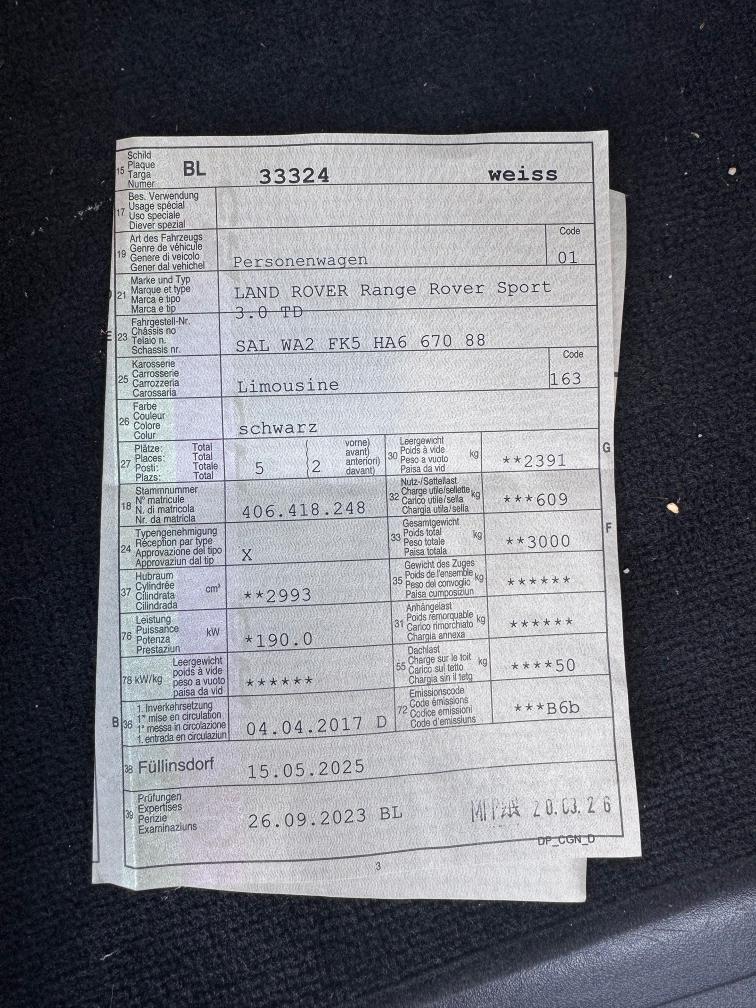 15 Schild Plaque Targa Numer BL 33324 weiss
17 Bes. Verwendung Usage spécial Uso speciale Diever spezial
19 Art des Fahrzeugs Genre de véhicule Genere di veicolo Gener dal vehichel Personenwagen Code 01
21 Marke und Typ Marque et type Marca e tipo Marca e tip LAND ROVER Range Rover Sport
3.0 TD
23 Fahrgestell-Nr. Châssis no Telaio n. Schassis nr. SAL WA2 FK5 HA6 670 88
25 Karosserie Carrosserie Carrozzeria Carossaria Limousine Code 163
26 Farbe Couleur Colore Colur schwarz
27 Plätze: Total Places: Total Posti: Totale Plazs: Total 5 ( 2 vorne) avant) anteriori) davant)
30 Leergewicht Poids à vide Peso a vuoto Paisa da vid kg **2391 G
18 Stammnummer N° matricule N. di matricola Nr. da matricla 406.418.248
32 Nutz-/Sattellast Charge utile/sellette Carico utile/sella Chargia utila/sella kg ***609
24 Typengenehmigung Réception par type Approvazione del tipo Approvaziun dal tip X
33 Gesamtgewicht Poids total Peso totale Paisa totala kg **3000 F
37 Hubraum Cylindrée Cilindrata Cilindrada cm³ **2993
35 Gewicht des Zuges Poids de l'ensemble Peso del convoglio Paisa cumposiziun kg ******
76 Leistung Puissance Potenza Prestaziun kW *190.0
31 Anhängelast Poids remorquable Carico rimorchiato Chargia annexa kg ******
78 kW/kg Leergewicht poids à vide peso a vuoto paisa da vid ******
55 Dachlast Charge sur le toit Carico sul tetto Chargia sin il tetg kg ****50
B 36 1. Inverkehrsetzung 1re mise en circulation 1a messa in circolazione 1. entrada en circulaziun 04.04.2017 D
72 Emissionscode Code émissions Codice emissioni Code d'emissiuns ***B6b
38 Füllinsdorf 15.05.2025
39 Prüfungen Expertises Perizie Examinaziuns 26.09.2023 BL 20.03.26
DP_CGN_D
3